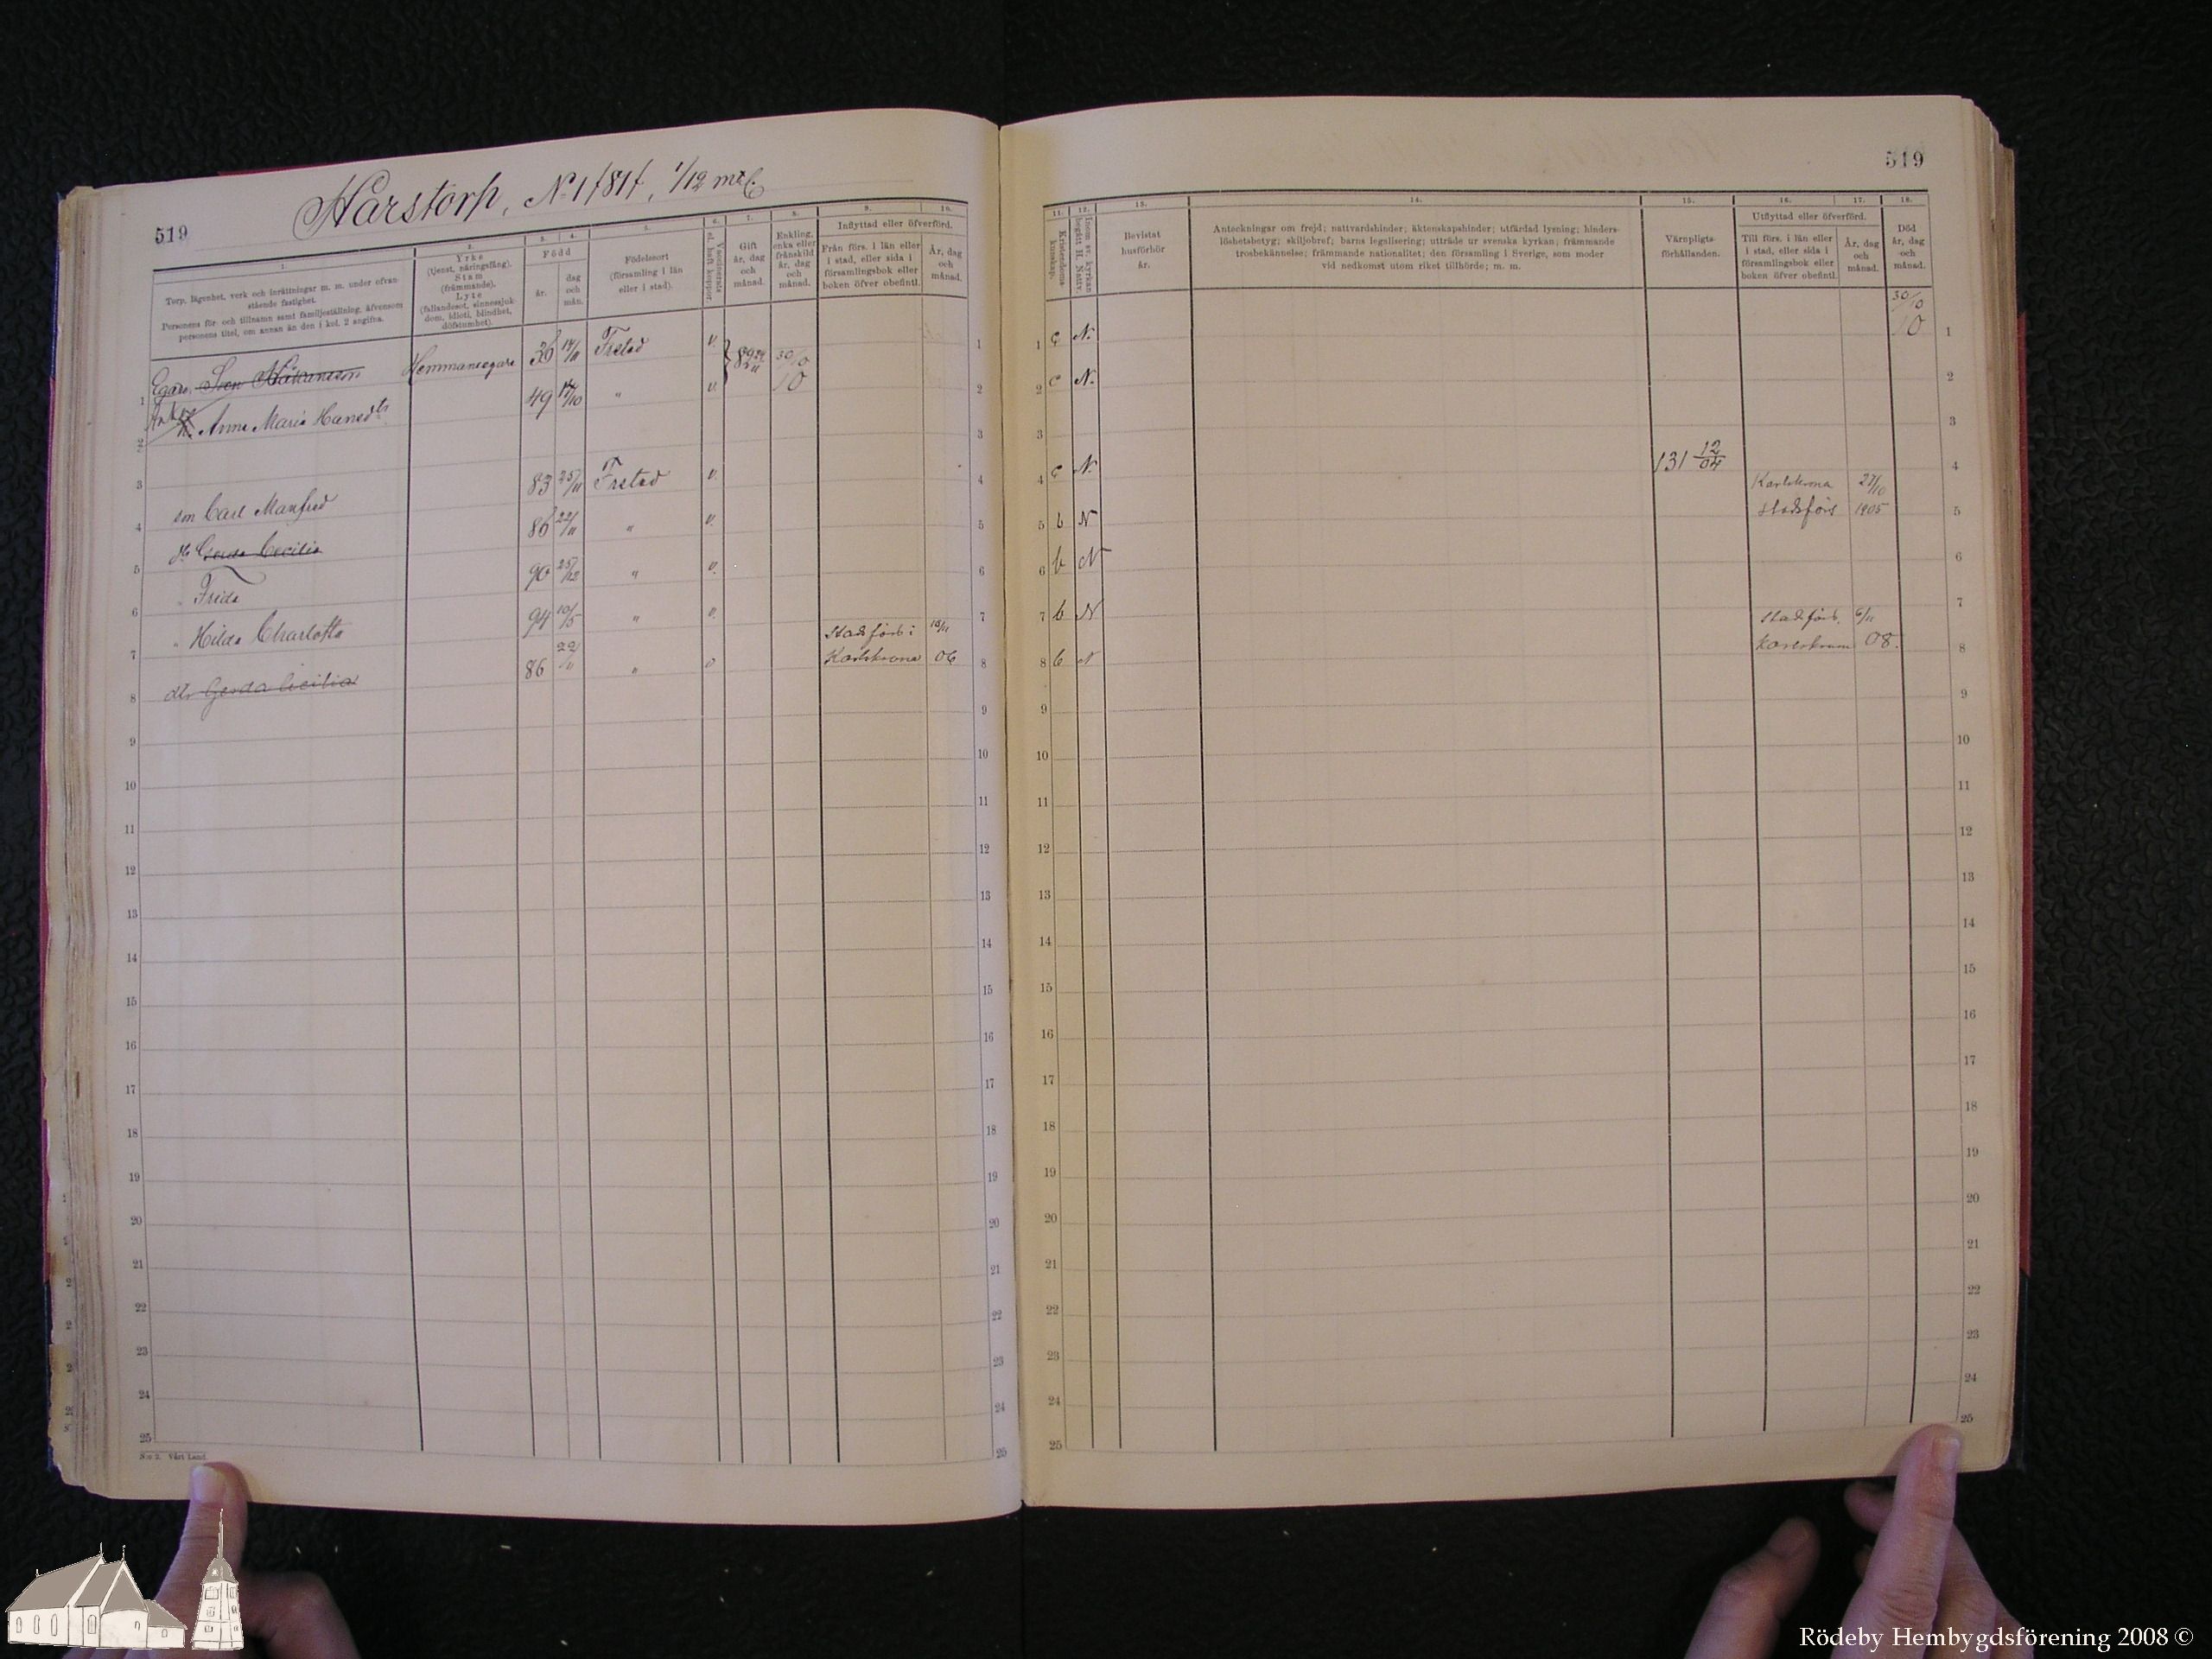 519
Harstorp, No 1 1/81 f, 1/12 mtl.
1. 2. 3. 4. 5. 6. 7. 8. 9. 10.
Torp, lägenhet, verk och inrättningar m. m. under ofvan
stående fastighet.
Personens för- och tillnamn samt familjeställning, äfvensom
personens titel, om annan än den i kol. 2 angifna.
Yrke
(tjenst, näringsfång).
Stam
(främmande).
Lyte
(fallandesot, sinnessjuk-
dom, idioti, blindhet,
döfstumhet).
Född
år.
dag
och
mån.
Födelseort
(församling i län
eller i stad).
Vaccinerats
el. haft koppor.
Gift
år, dag
och
månad.
Enkling,
enka eller
frånskild
år, dag
och
månad.
Inflyttad eller öfverförd.
Från förs. i län eller
i stad, eller sida i
församlingsbok eller
boken öfver obefintl.
År, dag
och
månad.
1 Egare Sven Håkansson Hemmansegare 36 14/11 Frstad v. 89 29/11 30/10 10 1
2 Enka h. Anna Maria Hansdtr 49 14/10 " v. 2
3 3
4 son Carl Manfred 83 25/11 Frstad v. 4
5 dr Gerda Cecilia 86 22/11 " v. 5
6 " Frida 90 25/12 " v. 6
7 " Hilda Charlotta 94 10/5 " v. 7
8 dtr Gerda Cecilia 86 22/11 " v Stadsförs i Karlskrona 15/11 06 8
9 9
10 10
11 11
12 12
13 13
14 14
15 15
16 16
17 17
18 18
19 19
20 20
21 21
22 22
23 23
24 24
25 25
N:r 2. Vårt Land
519
11. 12. 13. 14. 15. 16. 17. 18.
Kristendoms-
kunskap.
Inom sv. kyrkan
begått H. Nattv.
Bevistat
husförhör
år.
Anteckningar om frejd; nattvardshinder; äktenskapshinder; utfärdad lysning; hinders-
löshetsbetyg; skiljobref; barns legalisering; utträde ur svenska kyrkan; främmande
trosbekännelse; främmande nationalitet; den församling i Sverige, som moder
vid nedkomst utom riket tillhörde; m. m.
Värnpligts-
förhållanden.
Utflyttad eller öfverförd.
Till förs. i län eller
i stad, eller sida i
församlingsbok eller
boken öfver obefintl.
År, dag
och
månad.
Död
år, dag
och
månad.
1 c N. 30/10 10 1
2 c N. 2
3 3
4 c N. 131 12/04 4
5 b N Karlskrona stadsförs 27/10 1905 5
6 b N 6
7 b N 7
8 b N Stadsförs. Karlskrona 6/11 08. 8
9 9
10 10
11 11
12 12
13 13
14 14
15 15
16 16
17 17
18 18
19 19
20 20
21 21
22 22
23 23
24 24
25 25
Rödeby Hembygdsförening 2008 ©